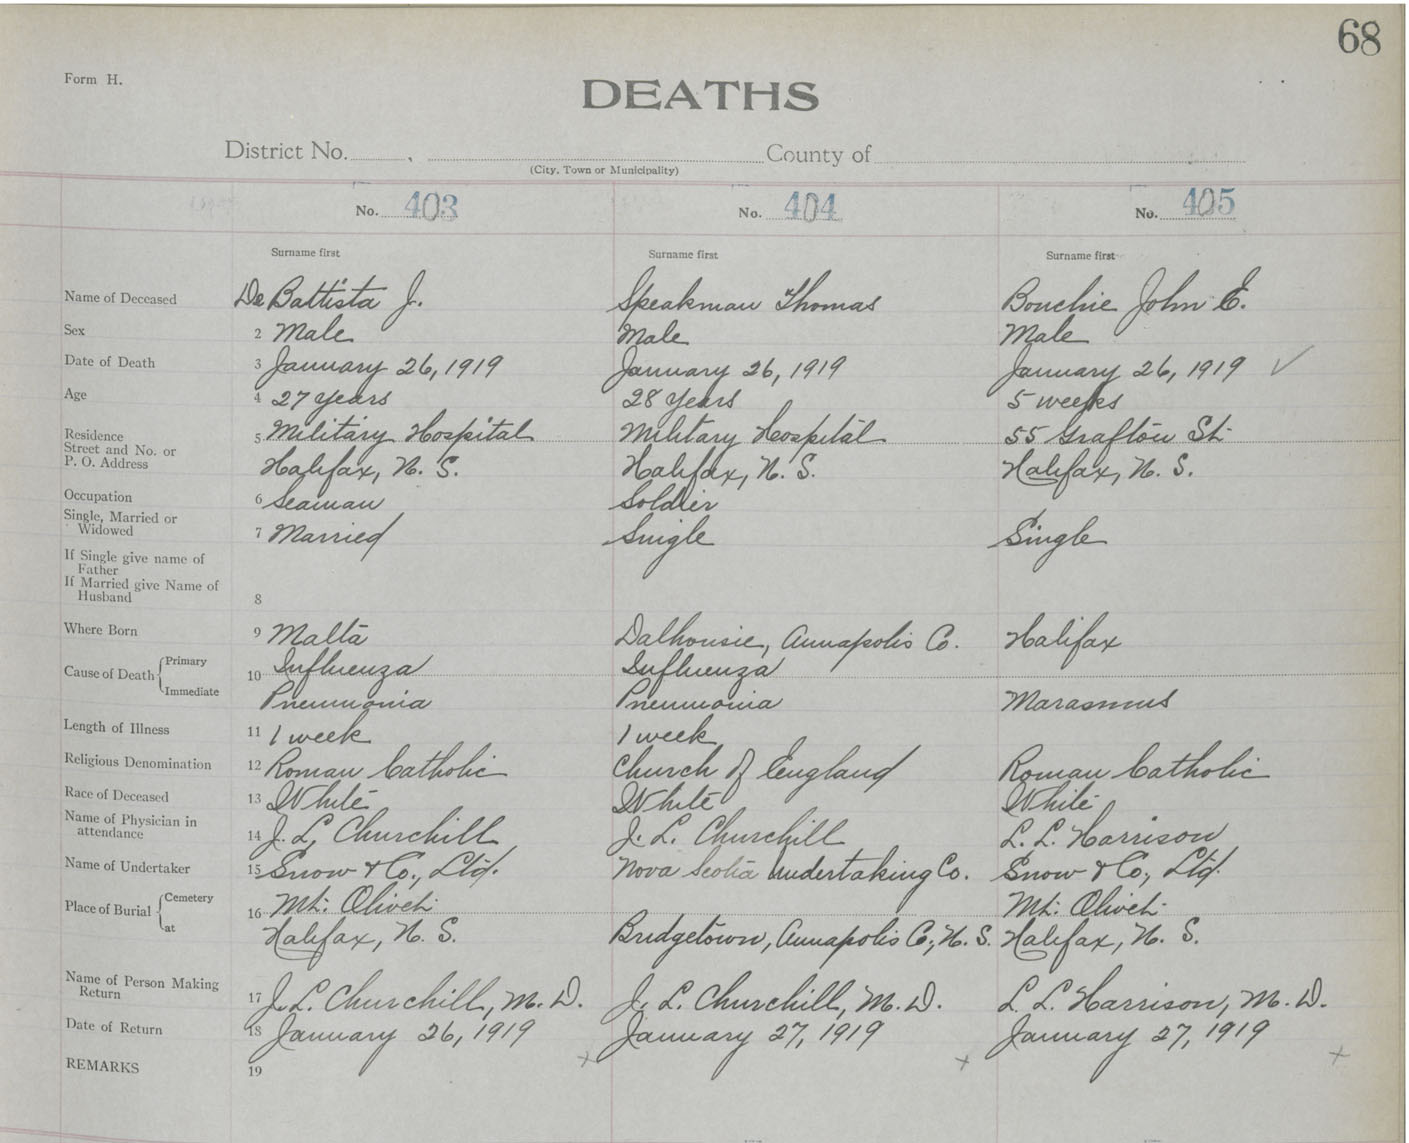 68
Form H.
DEATHS
District No. , County of
(City, Town or Municipality)
No. 403 No. 404 No. 405
Surname first Surname first Surname first
Name of Deceased De Battista J. Speakman Thomas Bouchie John E.
Sex 2 Male Male Male
Date of Death 3 January 26, 1919 January 26, 1919 January 26, 1919 ✓
Age 4 27 years 28 years 5 weeks
Residence
Street and No. or 5 Military Hospital Military Hospital 55 Grafton St.
P. O. Address Halifax, N. S. Halifax, N. S. Halifax, N. S.
Occupation 6 Seaman Soldier
Single, Married or
Widowed 7 Married Single Single
If Single give name of
Father
If Married give Name of
Husband 8
Where Born 9 Malta Dalhousie, Annapolis Co. Halifax
Cause of Death { Primary 10 Influenza Influenza
Immediate Pneumonia Pneumonia Marasmus
Length of Illness 11 1 week 1 week
Religious Denomination 12 Roman Catholic Church of England Roman Catholic
Race of Deceased 13 White White White
Name of Physician in
attendance 14 J. L. Churchill J. L. Churchill L. L. Harrison
Name of Undertaker 15 Snow & Co., Ltd. Nova Scotia Undertaking Co. Snow & Co., Ltd.
Place of Burial { Cemetery 16 Mt. Olivet Mt. Olivet
at Halifax, N. S. Bridgetown, Annapolis Co., N. S. Halifax, N. S.
Name of Person Making
Return 17 J. L. Churchill, M. D. J. L. Churchill, M. D. L. L. Harrison, M. D.
Date of Return 18 January 26, 1919 January 27, 1919 January 27, 1919
REMARKS 19 x x x